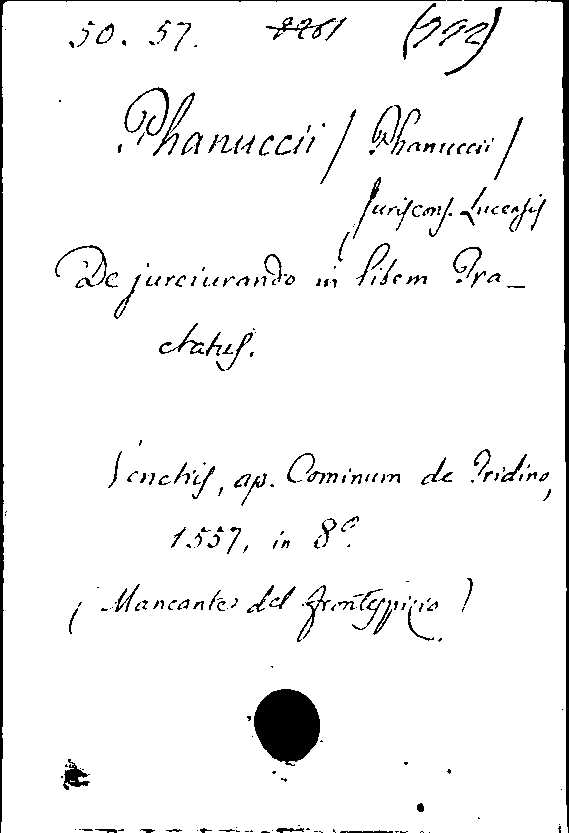 50. 57. 8261 (222)
Phanuccii / Phanuccii /
Juriscons. Lucensis
De jureiurando in litem Tra-
ctatus.
Venetiis, ap. Cominum de Tridino,
1557, in 8º.
(Mancante del frontespizio)